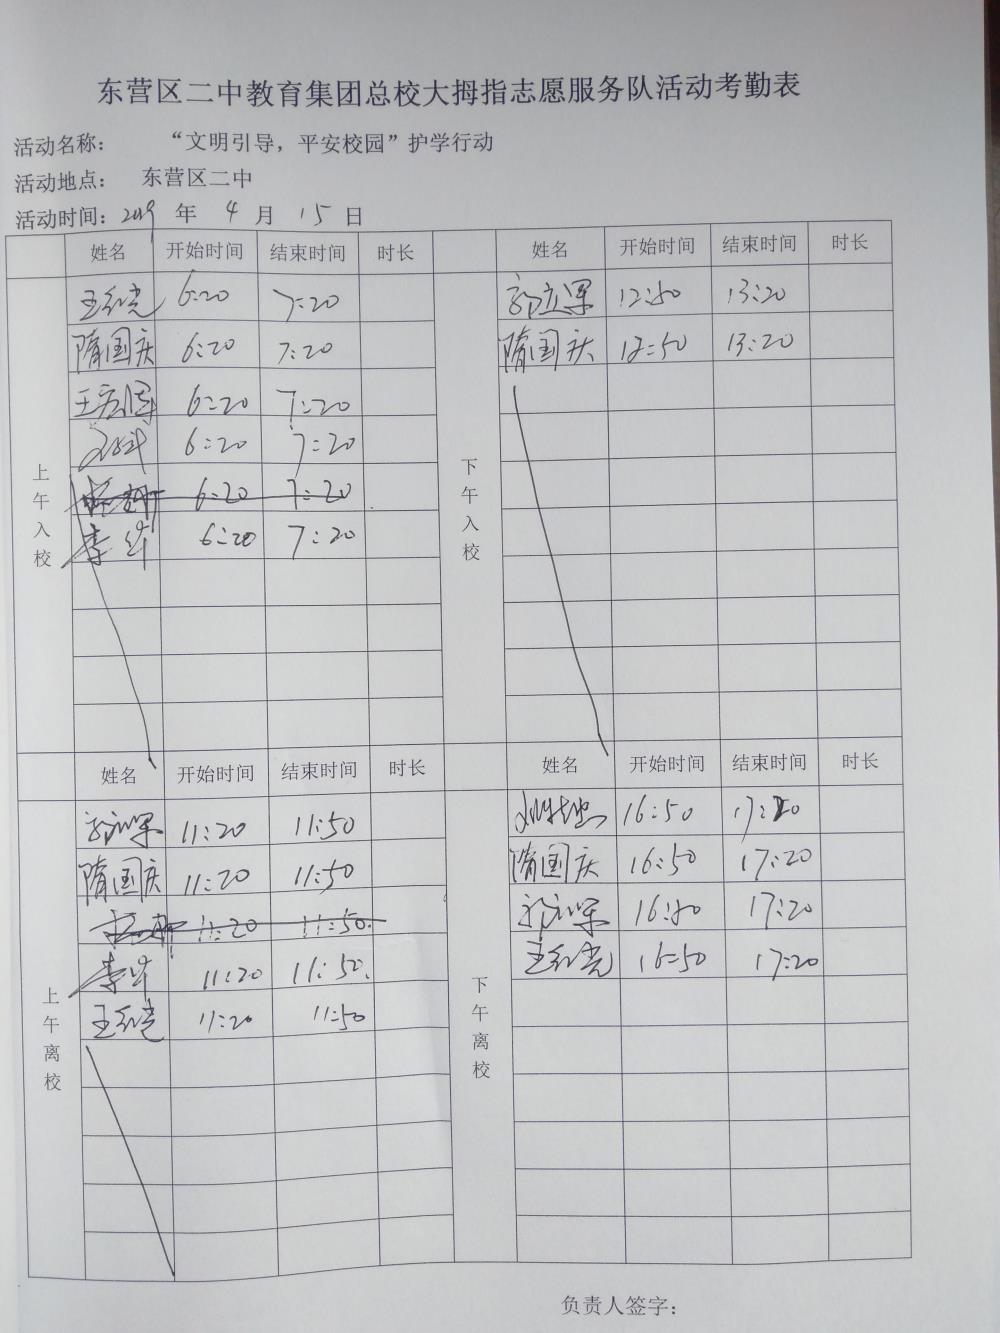 东营区二中教育集团总校大拇指志愿服务队活动考勤表
活动名称: “文明引导，平安校园”护学行动
活动地点: 东营区二中
活动时间: 2019 年 4 月 15 日
姓名 开始时间 结束时间 时长 姓名 开始时间 结束时间 时长
上午入校
王红光 6:20 7:20
隋国庆 6:20 7:20
6:20 7:20
6:20 7:20
6:20 7:20
李华 6:20 7:20
下午入校
12:50 13:20
隋国庆 12:50 13:20
姓名 开始时间 结束时间 时长 姓名 开始时间 结束时间 时长
上午离校
11:20 11:50
隋国庆 11:20 11:50
11:20 11:50.
李华 11:20 11:50.
王红光 11:20 11:50
下午离校
16:50 17:20
隋国庆 16:50 17:20
16:50 17:20
王红光 16:50 17:20
负责人签字: